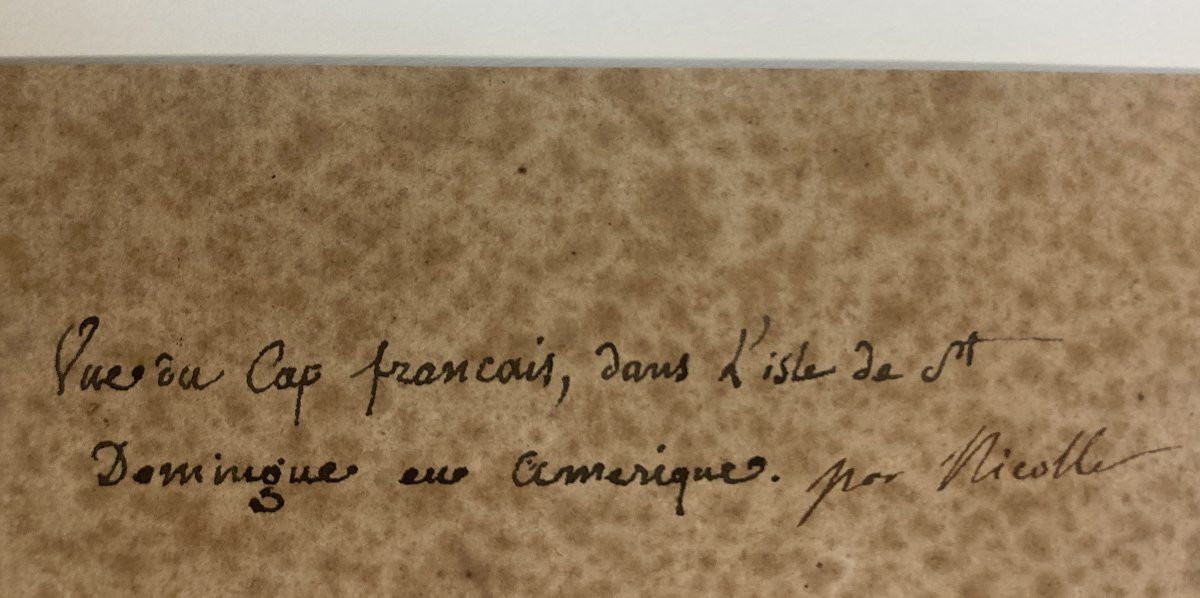 Vue du Cap francais, dans L'isle de St
Domingue en Amerique. par Nicolle